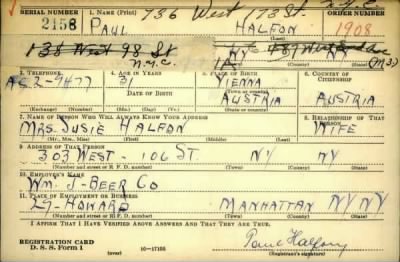 736 West 173 St. N.Y.C.
SERIAL NUMBER 1. NAME (Print) ORDER NUMBER
2158 PAUL HALFON 1908
(First) (Middle) (Last)
138 West 98 St NY NY
N.Y.C. 1A
3. TELEPHONE 4. AGE IN YEARS 5. PLACE OF BIRTH 6. COUNTRY OF CITIZENSHIP
AC. 2-9477 31 VIENNA
DATE OF BIRTH AUSTRIA AUSTRIA
(Exchange) (Number) (Mo.) (Day) (Yr.) (State or country)
7. NAME OF PERSON WHO WILL ALWAYS KNOW YOUR ADDRESS 8. RELATIONSHIP OF THAT PERSON
MRS. SUSIE HALFON WIFE
(Mr., Mrs., Miss) (First) (Middle) (Last)
9. ADDRESS OF THAT PERSON
303 WEST - 106 ST. NY NY
(Number and street or R. F. D. number) (Town) (County) (State)
10. EMPLOYER'S NAME
WM. J - BEER CO
11. PLACE OF EMPLOYMENT OR BUSINESS
27 - HOWARD MANHATTAN NY NY
(Number and street or R. F. D. number) (Town) (County) (State)
I AFFIRM THAT I HAVE VERIFIED ABOVE ANSWERS AND THAT THEY ARE TRUE.
REGISTRATION CARD
D. S. S. Form 1 16-17105 Paul Halfon
(Registrant's signature)